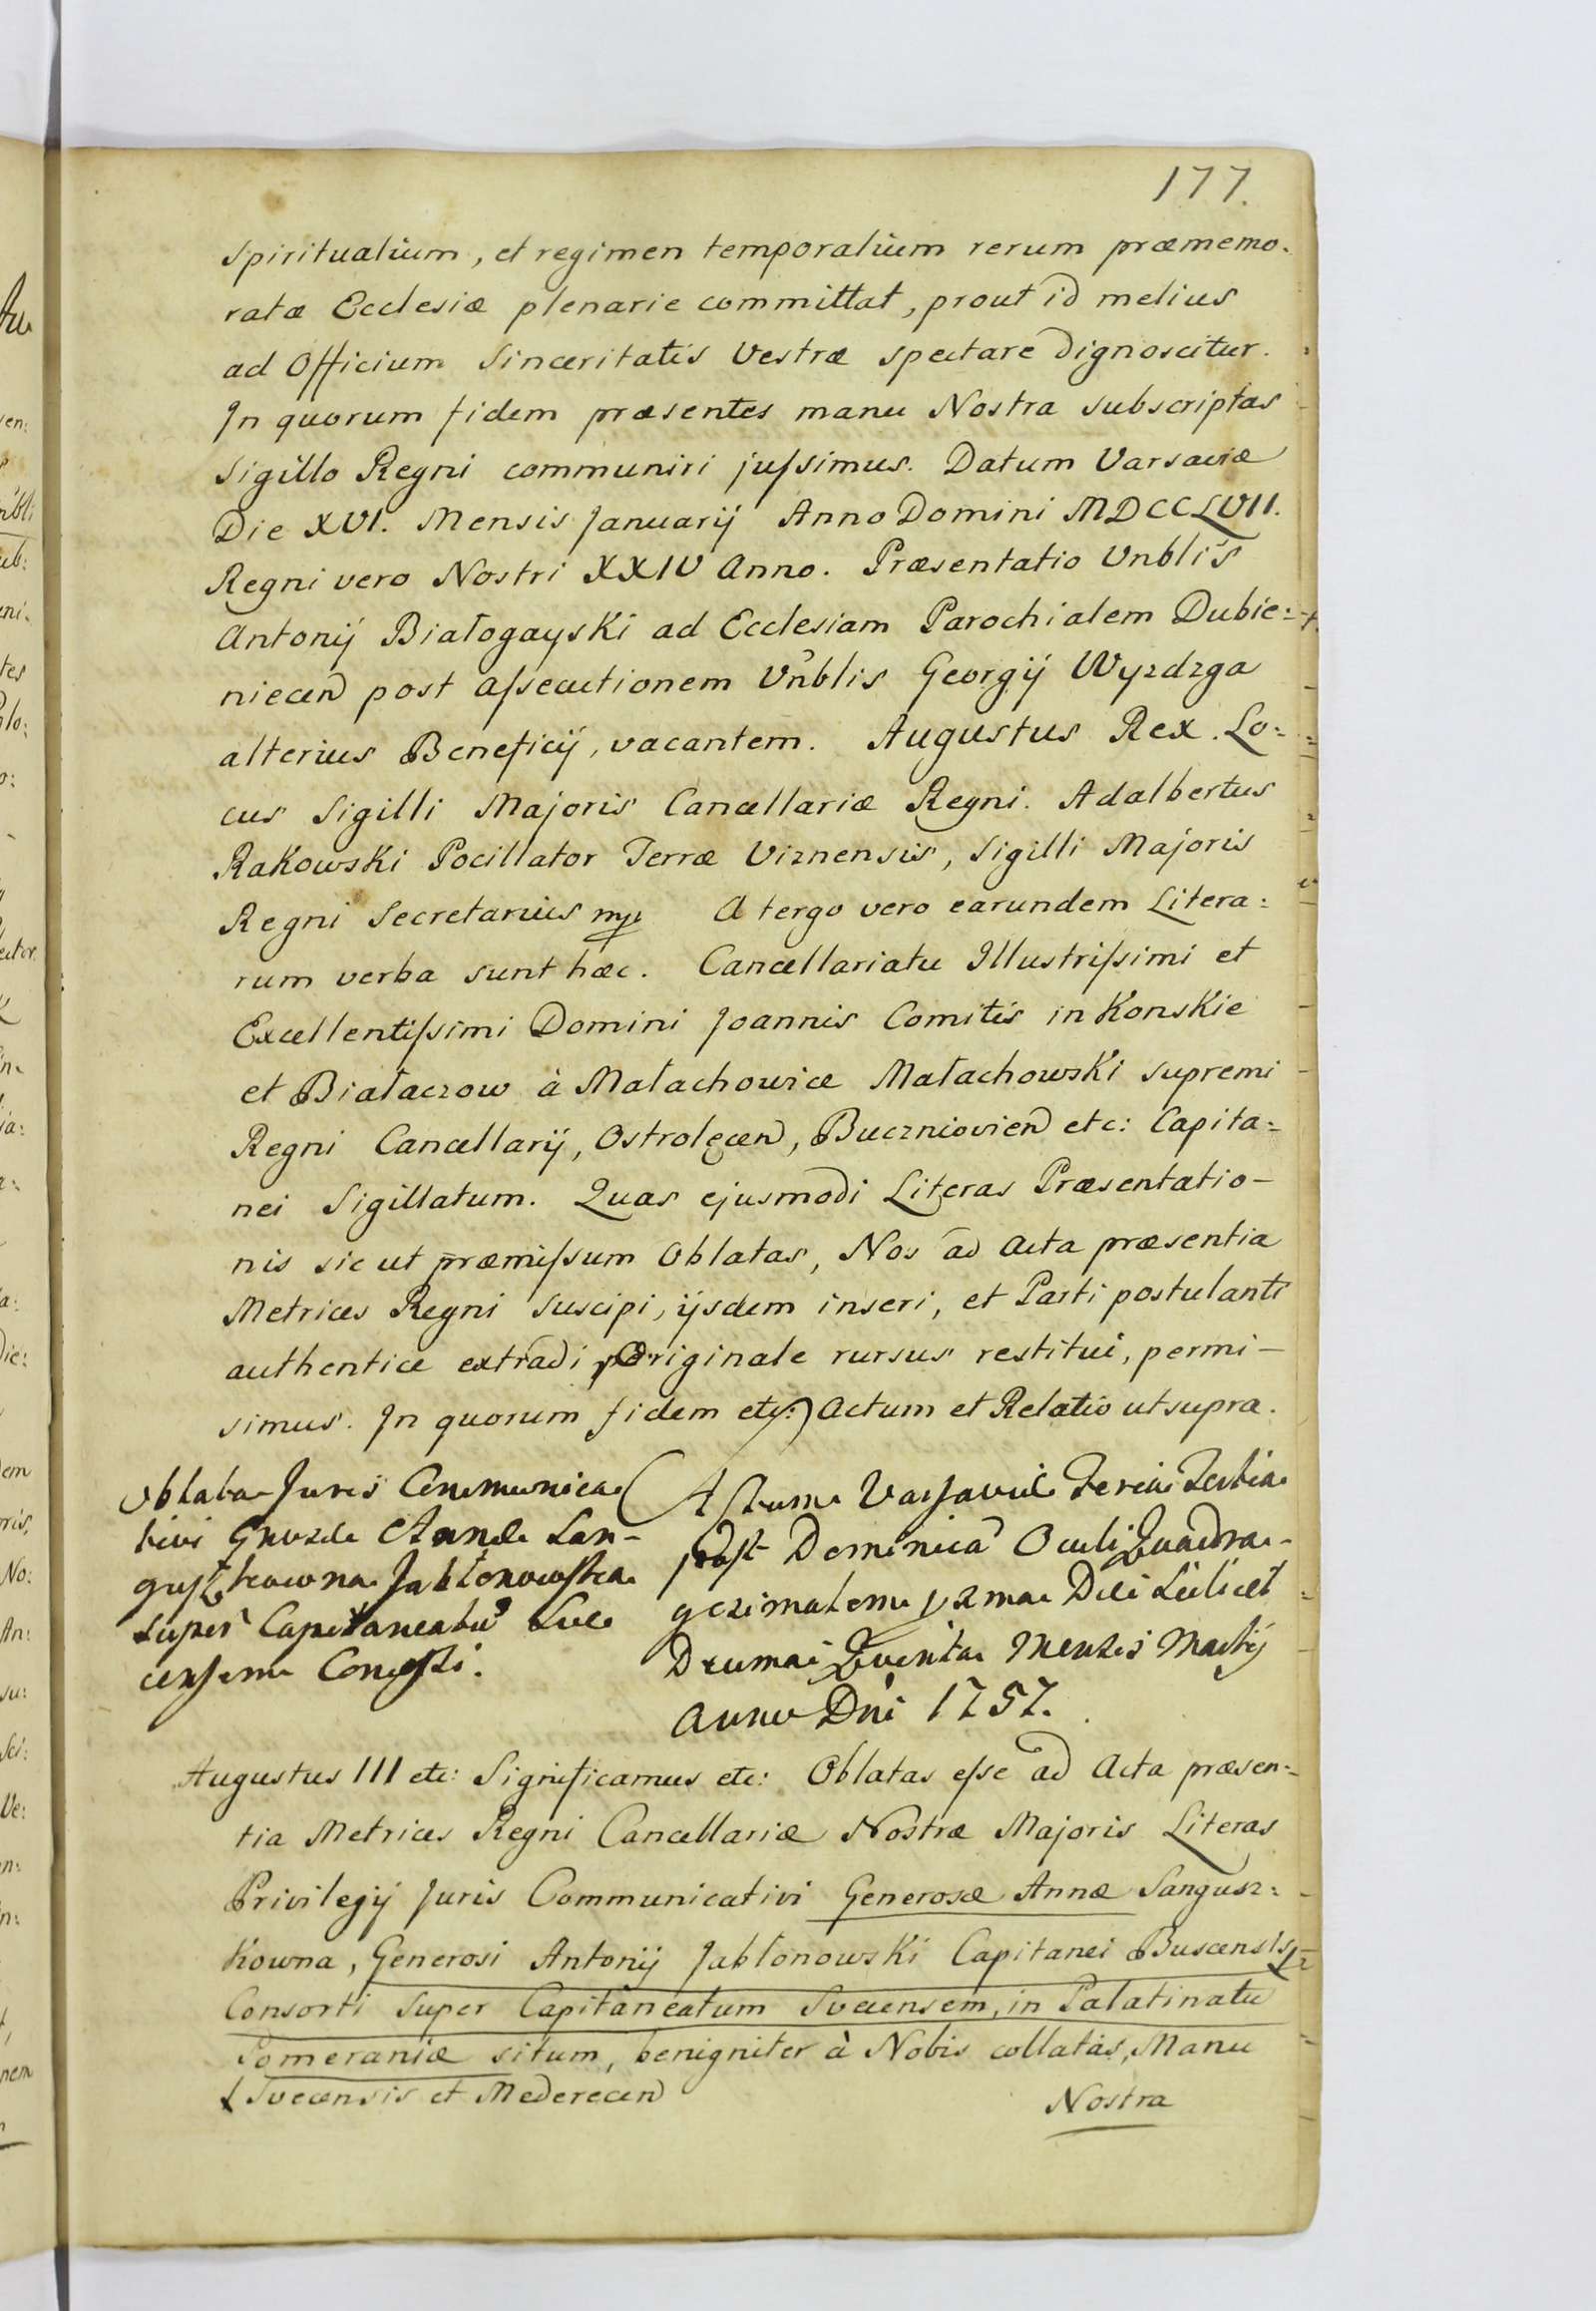 177.
spiritualium, et regimen temporalium rerum præmemo.
ratæ Ecclesiæ plenarie committat, prout id melius
ad Officium Sinceritatis Vestræ spectare dignoscitur.
In quorum fidem præsentes manu Nostra subscriptas
Sigillo Regni communiri jussimus. Datum Varsaviæ
Die XVI. Mensis Januarij Anno Domini MDCCLVII.
Regni vero Nostri XXIV Anno. Præsentatio Vnblis
Antonij Białogayski ad Ecclesiam Parochialem Dubie:
niecen post assecutionem Vnblis Georgij Wyrdzga
alterius Beneficij, vacantem. Augustus Rex. Lo:
cus Sigilli Majoris Cancellariæ Regni. Adalbertus
Rakowski Pocillator Terræ Viznensis, Sigilli Majoris
Regni Secretarius mp A tergo vero earundem Litera:
rum verba sunt hæc. Cancellariatu Illustrissimi et
Excellentissimi Domini Joannis Comitis in Konskie
et Białaczow à Małachowice Małachowski supremi
Regni Cancellarij, Ostrolęcen, Buczniovien etc: Capita:
nei Sigillatum. Quas ejusmodi Literas Præsentatio-
nis sic ut præmissum Oblatas, Nos ad Acta præsentia
Metrices Regni suscipi, ijsdem inseri, et Parti postulanti
authentice extradi, Originale rursus restitui, permi-
simus. In quorum fidem etc:) Actum et Relatio ut supra.
Oblata Juris Communica
tivi Gnosæ Annæ San-
guszkowna Jabłonowska
super Capitaneatu Sue
censem Concessi.
Actum Varsaviæ Feria Tertia
post Dominica Oculi Quadra-
gezimalem p̃ma Die Scilicet
Decima Quinta Mensis Martij
Anno Dni 1757.
Augustus III etc: Significamus etc: Oblatas esse ad Acta præsen-
tia Metrices Regni Cancellariæ Nostræ Majoris Literas
Privilegij Juris Communicativi Generosæ Annæ Sangusz:
kowna, Generosi Antonij Jabłonowski Capitanei Buscensis
Consorti super Capitaneatum Svecensem, in Palatinatu
Pomeraniæ situm, benigniter à Nobis collatas, Manu
Svecensis et Mederecen
Nostra